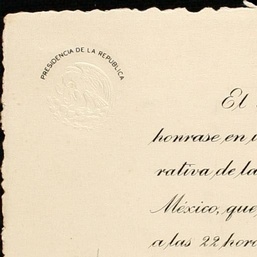 PRESIDENCIA DE LA REPUBLICA
El
honrase, en
rativa de la
México, que,
a las 22 hora